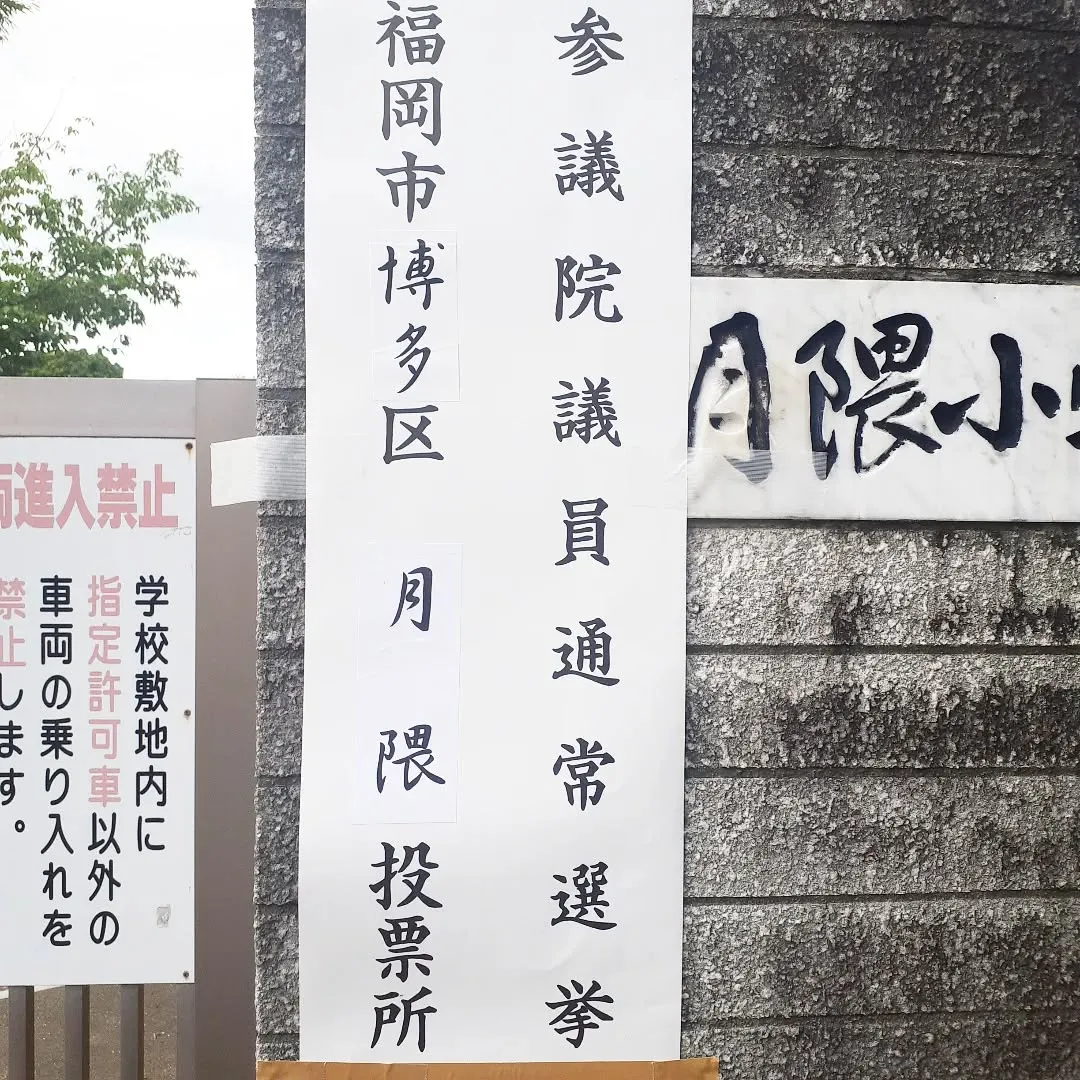 参議院議員通常選挙
福岡市博多区 月隈 投票所
月隈小
進入禁止
学校敷地内に
指定許可車以外の
車両の乗り入れを
禁止します。